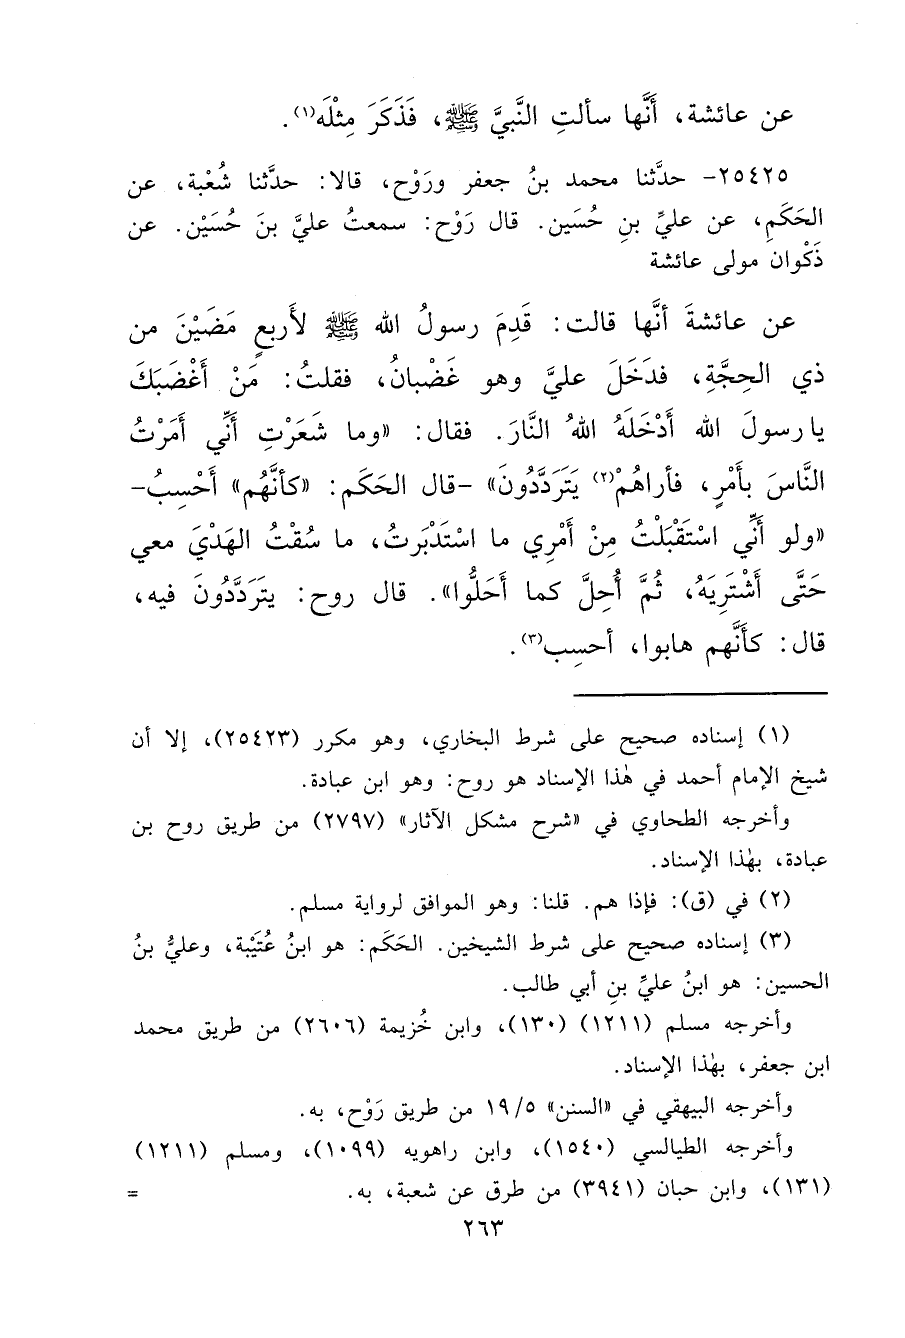 عن عائشة، أَنَّها سألتِ النَّبيَّ ﷺ، فَذَكَرَ مِثْلَه(١).
٢٥٤٢٥- حدَّثنا محمد بنُ جعفر ورَوْح، قالا: حدَّثنا شُعْبة، عن
الحَكَمِ، عن عليِّ بنِ حُسَين. قال رَوْح: سمعتُ عليَّ بنَ حُسَيْن. عن
ذَكْوان مولى عائشة
عن عائشةَ أنَّها قالت: قَدِمَ رسولُ الله ﷺ لأَربعٍ مَضَيْنَ من
ذي الحِجَّةِ، فدَخَلَ عليَّ وهو غَضْبانُ، فقلتُ: مَنْ أغْضَبَكَ
يا رسولَ الله أَدْخَلَهُ اللهُ النَّارَ. فقال: «وما شَعَرْتِ أَنِّي أَمَرْتُ
النَّاسَ بأَمْرٍ، فأراهُمْ(٢) يَتَرَدَّدُونَ» -قال الحَكَم: «كأنَّهُم» أَحْسِبُ-
«ولو أَنِّي اسْتَقْبَلْتُ مِنْ أَمْرِي ما اسْتَدْبَرتُ، ما سُقْتُ الهَدْيَ معي
حَتَّى أَشْتَرِيَهُ، ثُمَّ أُحِلَّ كما أَحَلُّوا». قال روح: يتَرَدَّدُونَ فيه،
قال: كأَنَّهم هابوا، أحسِب(٣).
(١) إسناده صحيح على شرط البخاري، وهو مكرر (٢٥٤٢٣)، إلا أن
شيخ الإمام أحمد في هٰذا الإسناد هو روح: وهو ابن عبادة.
وأخرجه الطحاوي في «شرح مشكل الآثار» (٢٧٩٧) من طريق روح بن
عبادة، بهٰذا الإسناد.
(٢) في (ق): فإذا هم. قلنا: وهو الموافق لرواية مسلم.
(٣) إسناده صحيح على شرط الشيخين. الحَكَم: هو ابنُ عُتَيْبة، وعليُّ بنُ
الحسين: هو ابنُ عليِّ بنِ أبي طالب.
وأخرجه مسلم (١٢١١) (١٣٠)، وابن خُزيمة (٢٦٠٦) من طريق محمد
ابن جعفر، بهٰذا الإسناد.
وأخرجه البيهقي في «السنن» ١٩/٥ من طريق رَوْح، به.
وأخرجه الطيالسي (١٥٤٠)، وابن راهويه (١٠٩٩)، ومسلم (١٢١١)
(١٣١)، وابن حبان (٣٩٤١) من طرق عن شعبة، به. =
٢٦٣